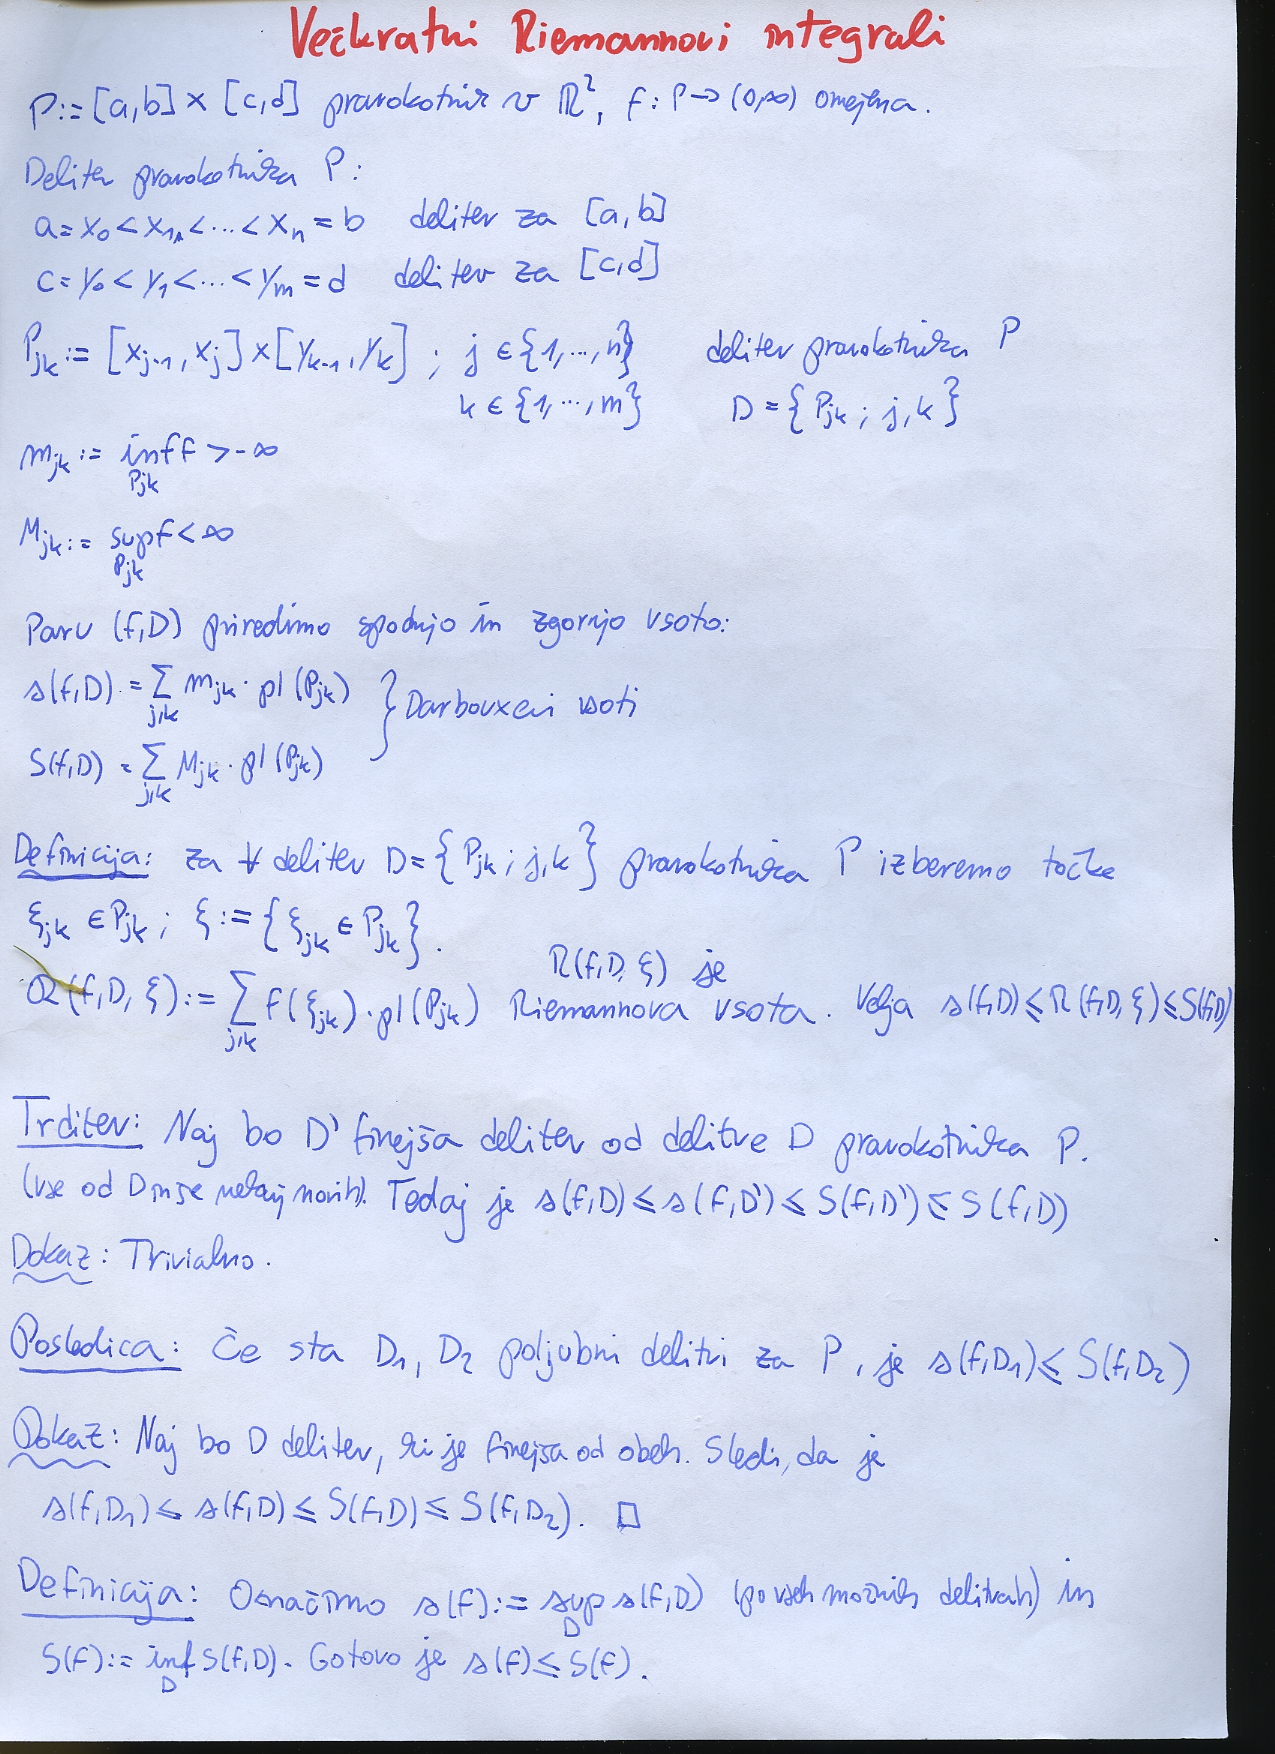 Večkratni Riemannovi integrali
P:=[a,b]×[c,d] pravokotnik v ℝ², f: P→(0,∞) omejena.
Delitev pravokotnika P:
a=x₀<x₁<...<xₙ=b delitev za [a,b]
c=y₀<y₁<...<yₘ=d delitev za [c,d]
P_jk:=[x_{j-1},x_j]×[y_{k-1},y_k]; j∈{1,...,n} delitev pravokotnika P
k∈{1,...,m} D={P_jk; j,k}
m_jk:= inf f >-∞
P_jk
M_jk:= sup f<∞
P_jk
Paru (f,D) priredimo spodnjo in zgornjo vsoto:
s(f,D)=∑_{j,k} m_jk·pl(P_jk) } Darbouxevi vsoti
S(f,D)=∑_{j,k} M_jk·pl(P_jk)
Definicija: za ∀ delitev D={P_jk; j,k} pravokotnika P izberemo točke
ξ_jk∈P_jk; ξ:={ξ_jk∈P_jk}.
R(f,D,ξ) je
R(f,D,ξ):=∑_{j,k} f(ξ_jk)·pl(P_jk) Riemannova vsota. Velja s(f,D)≤R(f,D,ξ)≤S(f,D)
Trditev: Naj bo D' finejša delitev od delitve D pravokotnika P.
(vse od D in še nekaj novih). Tedaj je s(f,D)≤s(f,D')≤S(f,D')≤S(f,D)
Dokaz: Trivialno.
Posledica: Če sta D₁, D₂ poljubni delitvi za P, je s(f,D₁)≤S(f,D₂)
Dokaz: Naj bo D delitev, ki je finejša od obeh. Sledi, da je
s(f,D₁)≤s(f,D)≤S(f,D)≤S(f,D₂). □
Definicija: Označimo s(f):= sup_D s(f,D) (po vseh možnih delitvah) in
S(f):= inf_D S(f,D). Gotovo je s(f)≤S(f).